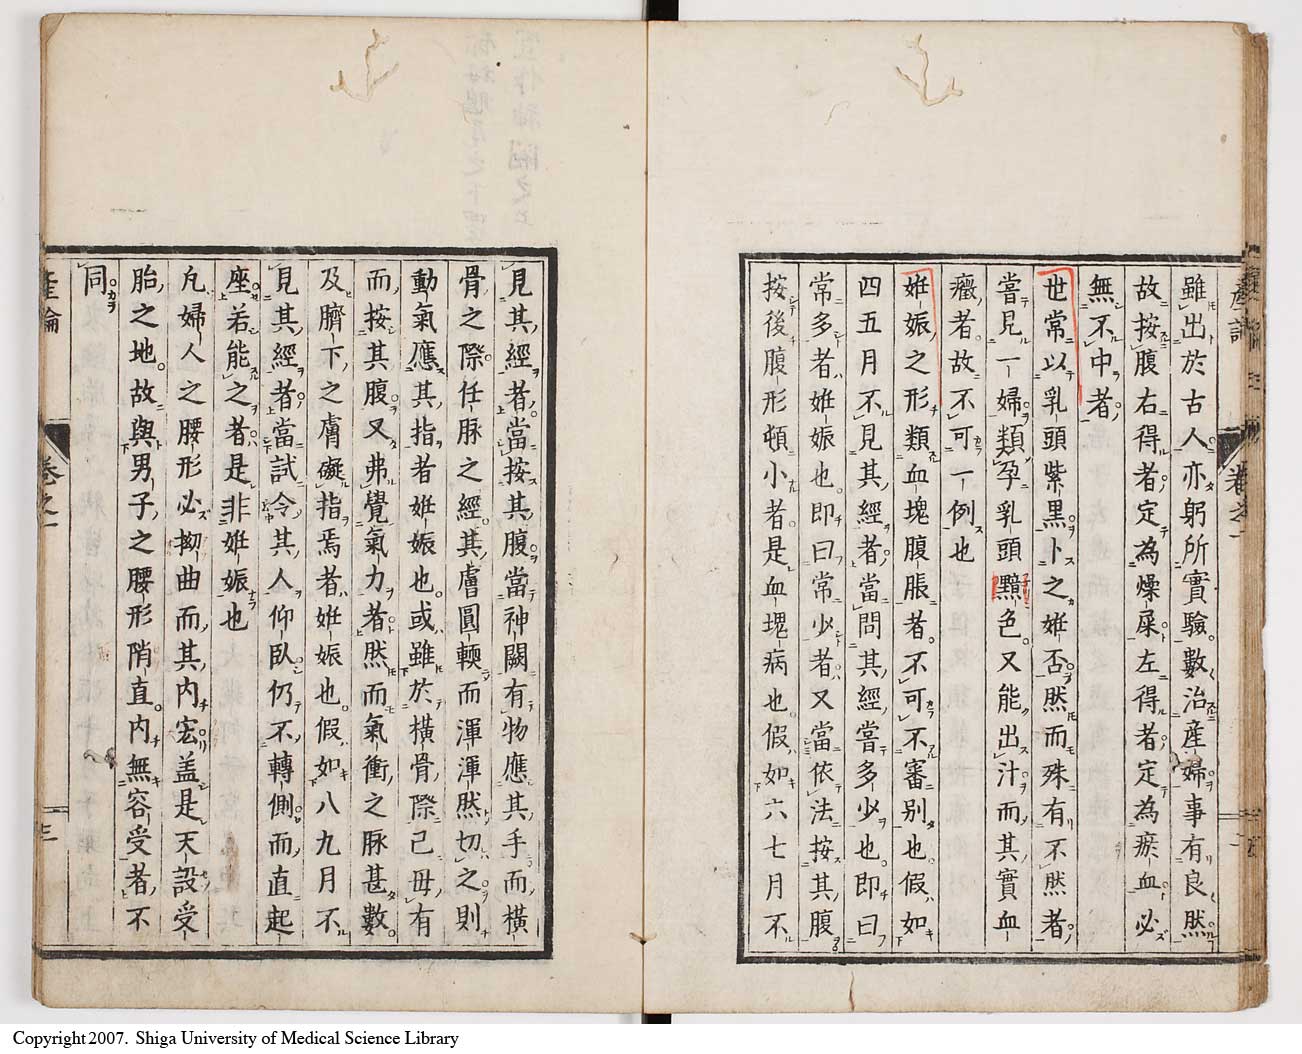 雖出於古人亦躬所實驗數治產婦事有良然
故按腹右得者定為燥屎左得者定為瘀血必
無不中者
世常以乳頭紫黑卜之姙否然而殊有不然者
嘗見一婦類孕乳頭黶色又能出汁而其實血
癥者故不可一例也
姙娠之形類血塊腹脹者不可不審別也假如
四五月不見其經者當問其經嘗多少也即曰
常多者姙娠也即曰常少者又當依法按其腹
按後腹形頓小者是血塊病也假如六七月不
見其經者當按其腹當神闕有物應其手而橫
骨之際任脉之經其膚圓輭而渾渾然切之則
動氣應其指者姙娠也或雖於橫骨際己毋有
而按其腹又弗覺氣力者然而氣衝之脉甚數
及臍下之膚礙指焉者姙娠也假如八九月不
見其經者當試令其人仰臥仍不轉側而直起
座若能之者是非姙娠也
凡婦人之腰形必拗曲而其内宏盖是天設受
胎之地故與男子之腰形陗直内無容受者不
同
產論
卷之一
三
Copyright 2007. Shiga University of Medical Science Library